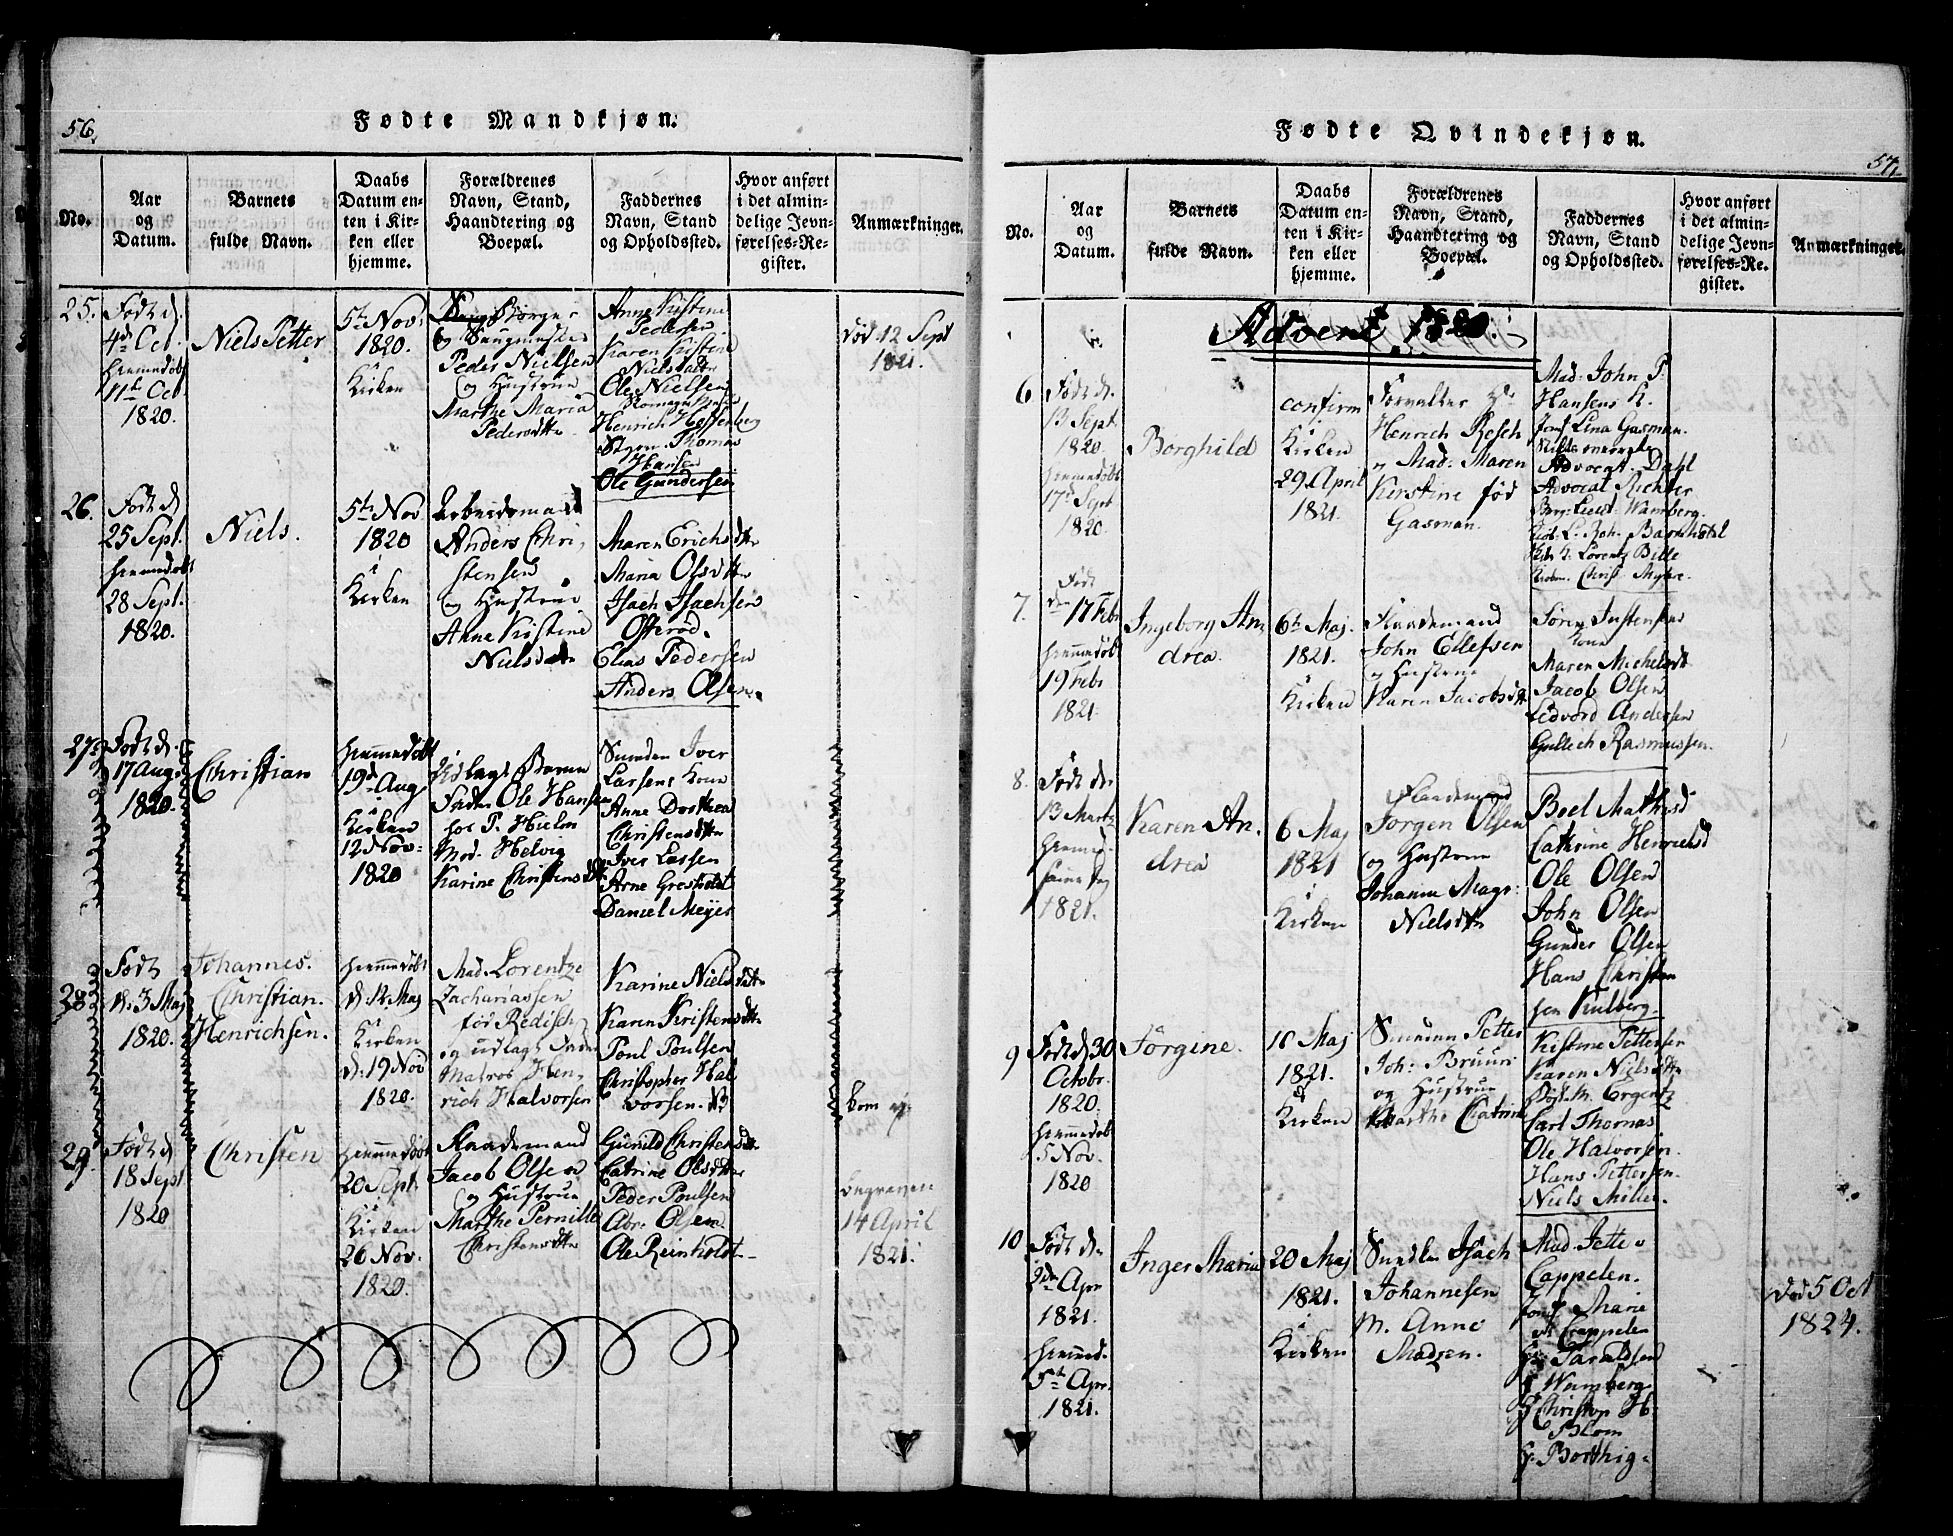 56.
Fødte Mandkjøn.
No.
Aar
og
Datum.
Barnets
fulde Navn.
Daabs
Datum en-
ten i Kir-
ken eller
hjemme.
Forældrenes
Navn, Stand,
Haandtering og
Boepæl.
Faddernes
Navn, Stand
og Opholdssted.
Hvor anført
i det almin-
delige Jevn-
førelses-Re-
gister.
Anmærkninger.
25.
Født d.
4de Oct.
hiemmedøbt
11te Oct.
1820.
Niels Petter
5te Nov.
1820.
i
Kirken
Borger
Peder Nielsen
og Hustrue
Marthe Maria
Pedersdttr
Anne Kistine
Pedersen
Karen Kistine
Nielsdatter
Ole Nielsen
Henrich
Thomas
Hansen
Ole Gundersen
død 12 Sept
1821.
26.
Født d
25 Sept.
hiemmedøbt
28 Sept.
1820.
Niels.
5te Nov
1820
i
Kirken
Arbeidsmand
Anders Chri
stensen
og Hustrue
Anne Kistine
Nielsdattr
Maren Erichsdttr
Maria Olsdttr
Isach Isachsen
Osterød.
Elias Pedersen
Anders Olsen.
27
Født d.
17 Aug.
1820.
Christian
hiemmedøbt
19de Aug
i
Kirken
12 Nov.
1820
Udlagt Barne
Fader Ole Hansen
Mod. Helvig
Karine Christensdtr
Iver
Larsens Kone
Anne Dorthea
Christensdttr
Iver Larsen
Arne
Daniel Meyer
28
Født
d. 3 Maj
1820.
Johannes.
Christian.
Henrichsen.
hiemmedøbt
d. 12 Maj
i
Kirken
d. 19 Nov
1820.
Mad. Lorentze
Zachariassen
fød Redisch
og udlagt Fader
Matros Hen
rich Halvorsen
Karine Nielsdattr
Karen Kristensdttr
Poul Poulsen
Christopher Hal
vorsen.
29.
Født d
18 Sept
1820
Christen
hiemmedøbt
20 Sept.
i
Kirken
26 Nov.
1820.
Jacob Olsen
og Hustrue
Marthe Pernille
Christensdttr
Gunild Christensdttr
Catrine Olsdttr
Peder Poulsen
Abr. Olsen.
Ole Reinholdt
begraven
14 April
1821.
57.
Fødte Qvindekjøn.
No.
Aar
og
Datum.
Barnets
fulde Navn.
Daabs
Datum en-
ten i Kir-
ken eller
hjemme.
Forældrenes
Navn, Stand,
Haandtering og
Boepæl.
Faddernes
Navn, Stand
og Opholdssted.
Hvor anført
i det almin-
delige Jevn-
førelses-Re-
gister.
Anmærkninger.
Advent 1820.
6
Født d.
13 Sept.
1820.
hiemmedøbt
17 Sept
1820.
Borghild
confirm
i
Kirken
29 April
1821.
Forvalter Hr
Henrich Resch
Mad: Maren
Kirstine fød
Gasman.
Mad: John P.
Hansens K.
Jomf Lina Gasman.
Advocat. Dahl
Advocat Richter
Wamberg.
Lorentz Bille
Christ. Myhre.
7.
Født
den 17 Febr
hiemmedøbt
19 Febr
1821.
Ingeborg An
drea.
6te Maj.
1821.
i
Kirken
John Ellefsen
og Hustrue
Karen Jacobsdtr
Søren Justensens
Kone
Maren Michelsdt
Jacob Olsen
Edvord Andersen
Gullich Rasmussen.
8.
Født den
13 Martz
hiemmed.
samme Dag
1821.
Karen An.
drea
6 Maj
1821
i
Kirken
Jørgen Olsen
og Hustrue
Johanne Magr.
Nielsdttr
Boel Mathisd
Cathrine Henrichsd
Ole Olsen
John Olsen
Gunder Olsen
Hans Christen
sen Kulberg.
9
Født d 30
Octobr.
1820.
hiemmedøbt
5 Nov.
1820
Jørgine.
Maj
1821.
i
Kirken
Petter
Joh: Bruun
og Hustrue
Marthe Catrine
Kistine Pettersen
Karen Nielsdttr
Carl Thomas
Ole Halvorsen.
Hans Pettersen.
Niels Miller.
10
Født den
2den Apr
1821.
hiemmed.
5te Apr.
1821.
Inger Maria
20 Maj
1821.
i
Kirken
Isach
Johannesen
M. Anne
Madsen.
Mad. Jette v
Cappelen.
Jomf Marie
v. Cappelen
Hr Taraldsen
Wamberg
Christop H.
Blom
død 5 Oct
1824.